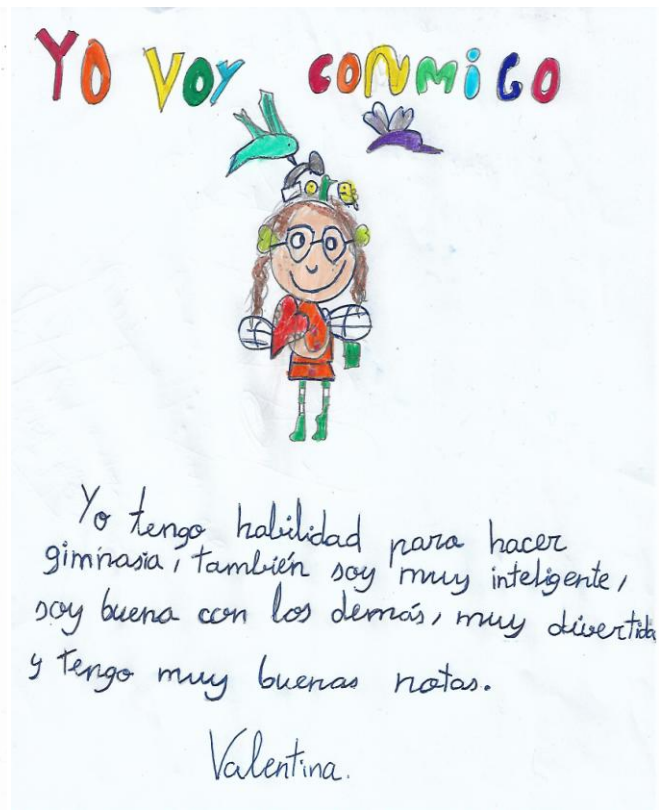 YO VOY CONMIGO
Yo tengo habilidad para hacer
gimnasia, también soy muy inteligente,
soy buena con los demás, muy divertida
y tengo muy buenas notas.
Valentina.